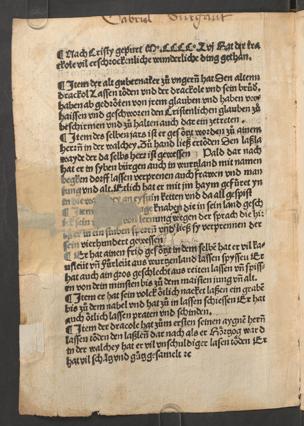 Gabriel
¶ Nach Cristy gepürt M°.CCCC°.Lvj Hat der dra-
ckole vil erschrockenliche wunderliche ding gethan.
¶ Item der alt gubernater zu ungern hat den altenn
drackol lassen töden und der drackole und sein brud,
haben ab gedröten von jrem glauben und haben vor-
haissen und geschworen den Cristenlichen glauben zu
beschirmen und zu halten auch dat ein zetreten.
¶ Item des selben jars ist er gesötzt worden zu ainem
herrn in der walchey. Zu hand ließ ertöden Den laßla
wayde der da selbs herr ist gewessen ¶ Dar nach palt
hat er in syben bürgen auch in wurtzland mit namen
dorff lassen verprenen auch frawen und man
jung und alt. Etlich hat er mit jm haym gefürt yn
in die an eysnin keiten und da all gespißt
¶ Item knaben die in sein land gesch
lernung wegen der sprach die hi:
er in ein stuben spern und ließ sy verprennen der
sein vierhundert gewessen
¶ Er hat ainen frid gesötzt in dem selbs hat er vil kau
fleüt und fürleüt aus wurtzenland lassen spyssen Er
hat auch ain gros geschlecht aus reiten lassen und spiss
en von dem minsten bis zu dem maisten jung und alt.
¶ Item er hat sein volck ötlich nacket laßen ein grabe
bis zu dem nabel und hat zu in lassen schiessen Er hat
auch ötlich lassen praten und schinden.
¶ Item der dracole hat zum ersten seinen aygne herrn
lassen töden den laßlen dat nach als er Hörtzog ward
in der walchey hat er vil unschuldiger lasen töden Er
hat vil schatz und gutz gesamelt etc